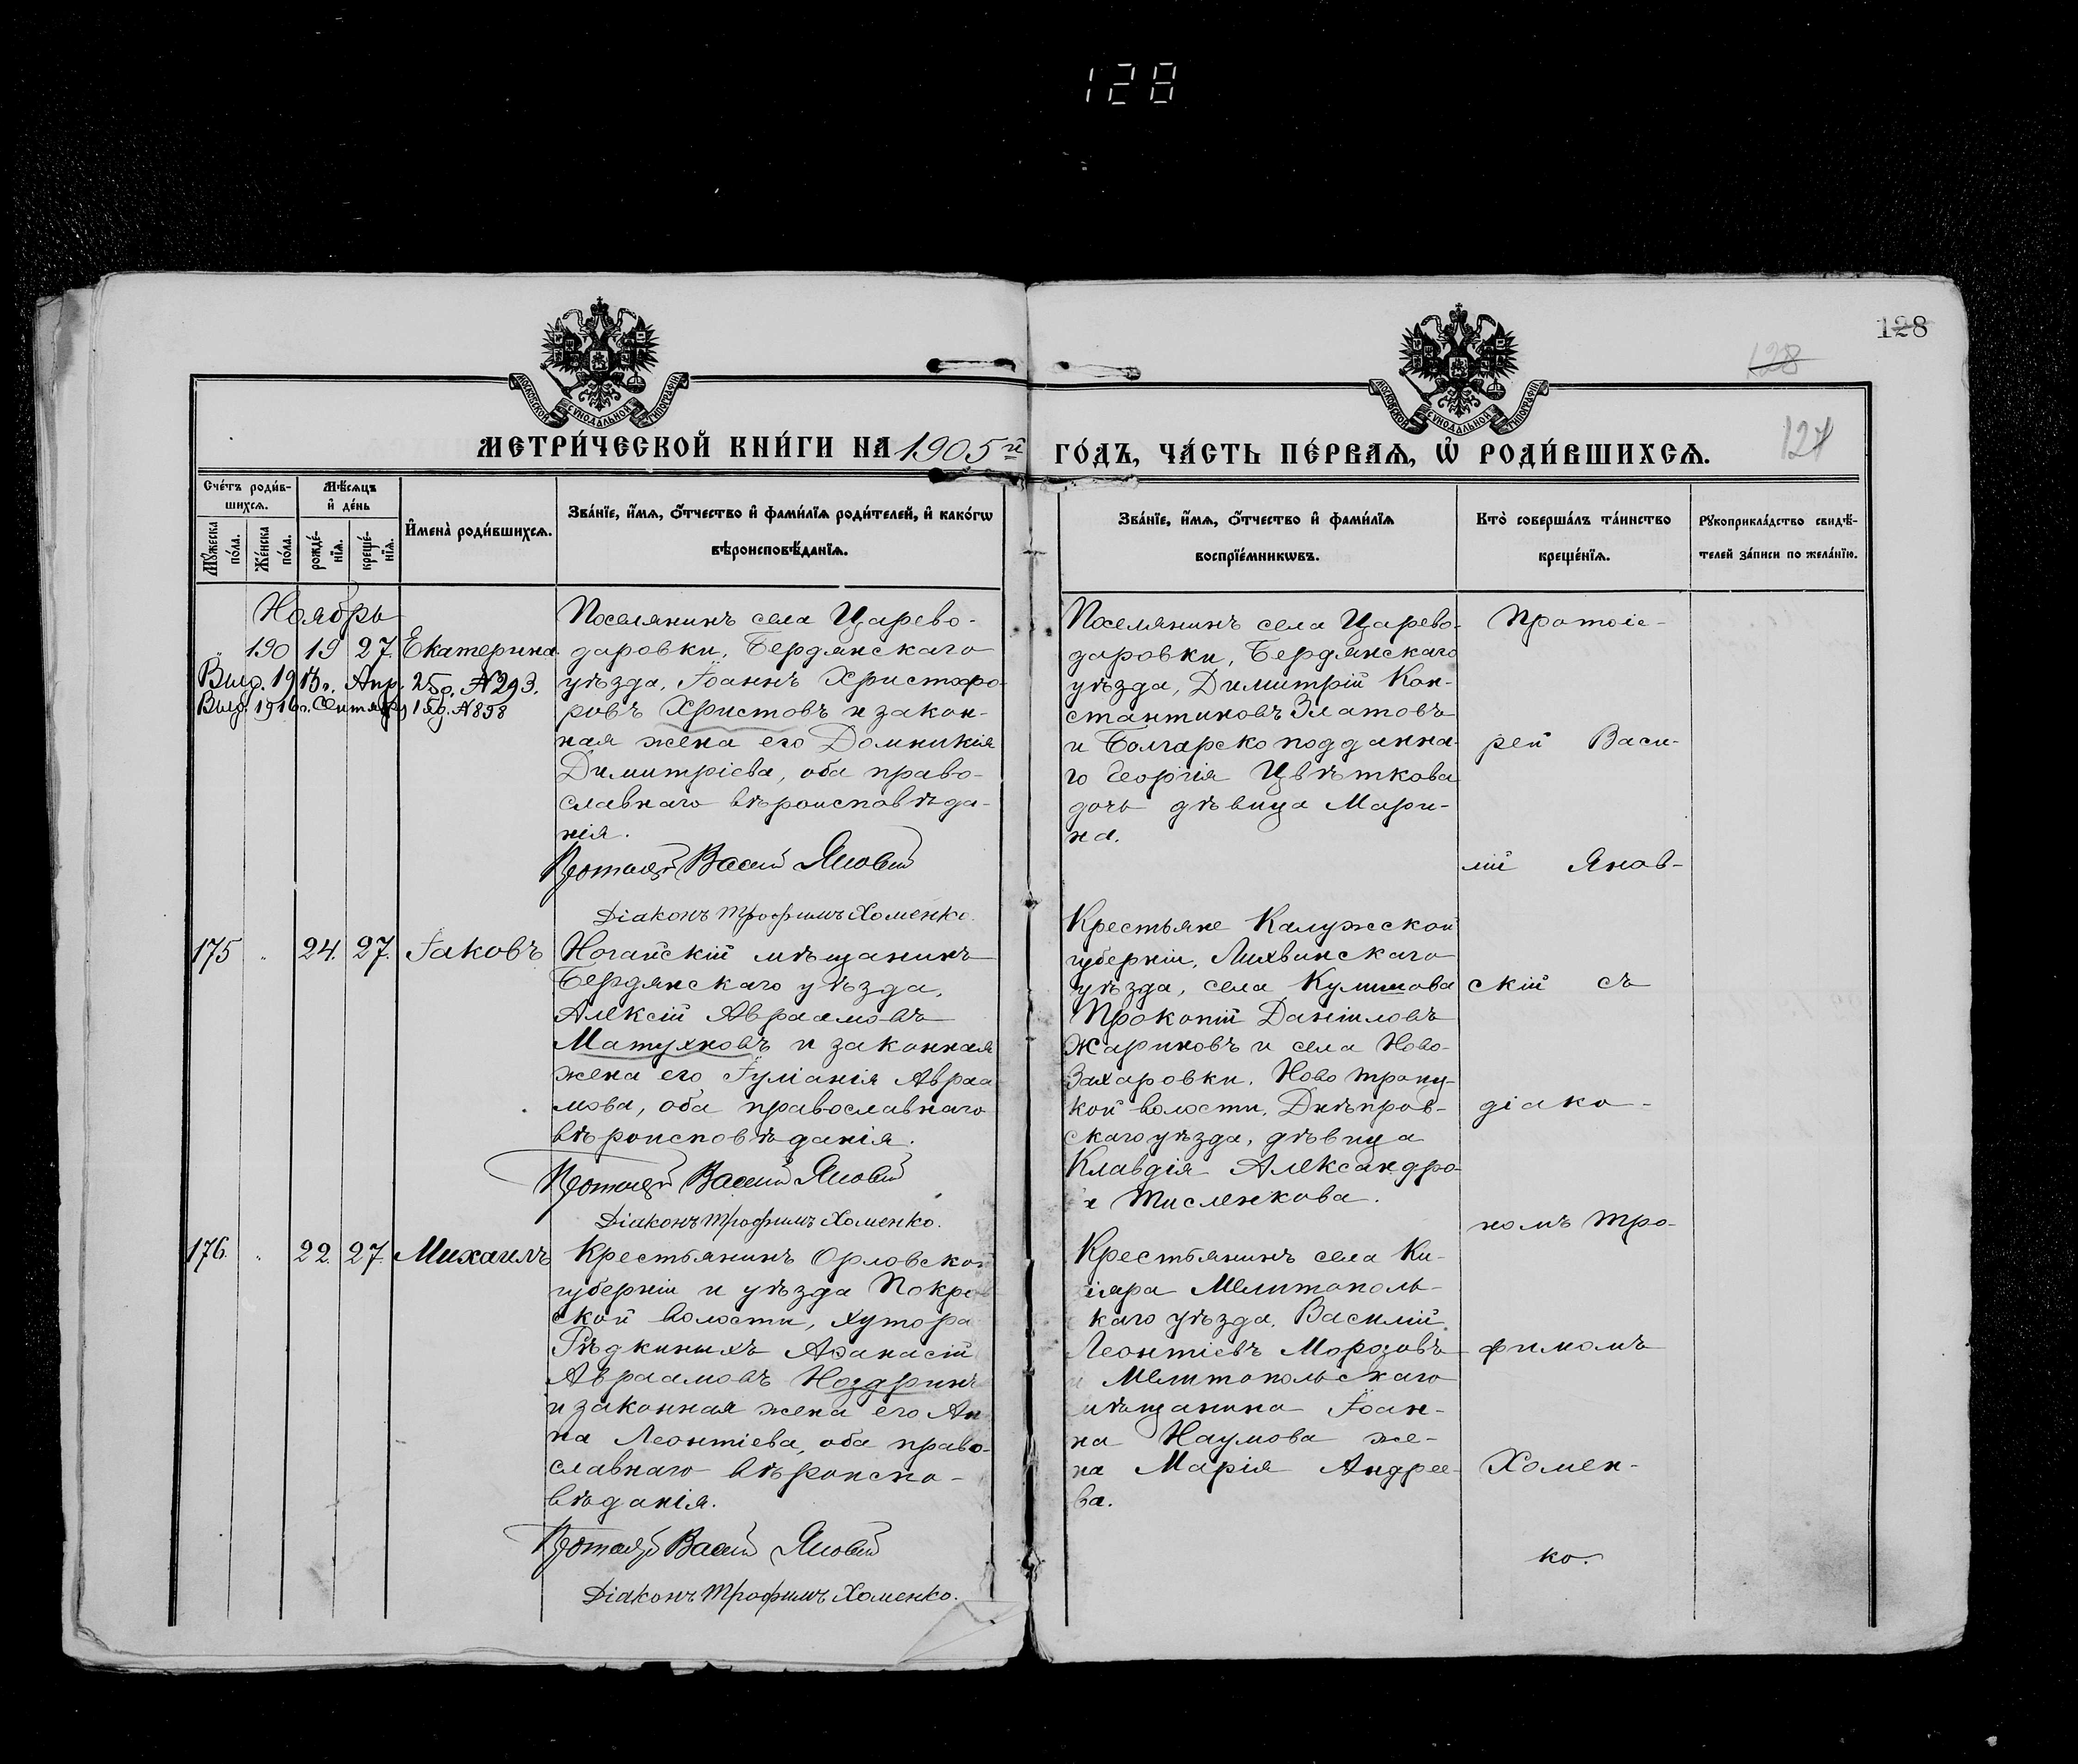 128
128
128
127
МОСКОВСКОЙ СѴНОДАЛЬНОЙ ТИПОГРАФІИ
МОСКОВСКОЙ СѴНОДАЛЬНОЙ ТИПОГРАФІИ
МЕТРИ́ЧЕСКОЙ КНИ́ГИ НА 1905й
ГО́ДЪ, ЧА́СТЬ ПЕ́РВАѦ, Ѽ РОДИ́ВШИХСѦ.
Сче́тъ роди́в-
шихсѧ.
Мꙋ́жеска по́ла.
Же́нска по́ла.
Мѣ́сѧцъ и҆ де́нь
рожде́-нїѧ.
креще́-нїѧ.
И҆мена̀ роди́вшихсѧ.
Зва́нїе, и҆́мѧ, ѻ҆́тчество и҆ фами́лїѧ роди́телей, и҆ како́гѡ
вѣроисповѣ́данїѧ.
Зва́нїе, и҆́мѧ, ѻ҆́тчество и҆ фами́лїѧ
воспрїе́мникѡвъ.
Кто̀ соверша́лъ та́инство
креще́нїѧ.
Рꙋкоприкла́дство свидѣ́-
телей за́писи по жела́нїю.
Ноябрь
190 19 27. Екатерина
Выд. 1913г. Апр. 25д. №293.
Выд. 1916г. Сентябр 1 №858
Поселянинъ села Царево-
даровки, Бердянскаго
уѣзда, Іоаннъ Христофо-
ровъ Христовъ и закон-
ная жена его Домникія
Димитріева, оба право-
славнаго вѣроисповѣда-
нія.
Протоіерей Василій Яновскій
Діаконъ Трофимъ Хоменко.
Поселянинъ села Царево-
даровки, Бердянскаго
уѣзда, Димитрій Кон-
стантиновъ Златовъ
и Болгарско подданна-
го Георгія Цвѣткова
дочь дѣвица Мари-
на.
175 " 24. 27. Іаковъ
Ногайскій мѣщанинъ
Бердянскаго уѣзда,
Алексій Авраамовъ
Матухновъ и законная
жена его Іуліанія Авраа
мова, оба православнаго
вѣроисповѣданія.
Протоіерей Василій Яновскій
Діаконъ Трофимъ Хоменко.
Крестьяне Калужской
губерніи, Лихвинскаго
уѣзда, села
Прокопій Даніиловъ
Жариковъ и села Ново-
Захаровки, Ново
кой волости, Днѣпров-
скаго уѣзда, дѣвица
Клавдія Александро
Тисленкова.
176. " 22. 27. Михаилъ
Крестьянинъ Орловской
губерніи и уѣзда Покров
ской волости, хутора
Рѣдкиныхъ Аѳанасій
Авраамовъ Ноздринъ
и законная жена его Ан
на Леонтіева, оба право-
славнаго вѣроиспо-
вѣданія.
Протоіерей Василій Яновскій
Діаконъ Трофимъ Хоменко.
Крестьянинъ села Ки-
Мелитополь-
каго уѣзда, Василій
Леонтіевъ Морозовъ
и Мелитопольскаго
мѣщанина Іоан-
на Наумова же-
на Марія Андрее-
ва.
Протоіе-
рей Васи-
лій Янов-
скій съ
діако-
номъ Тро-
фимомъ
Хомен-
ко.